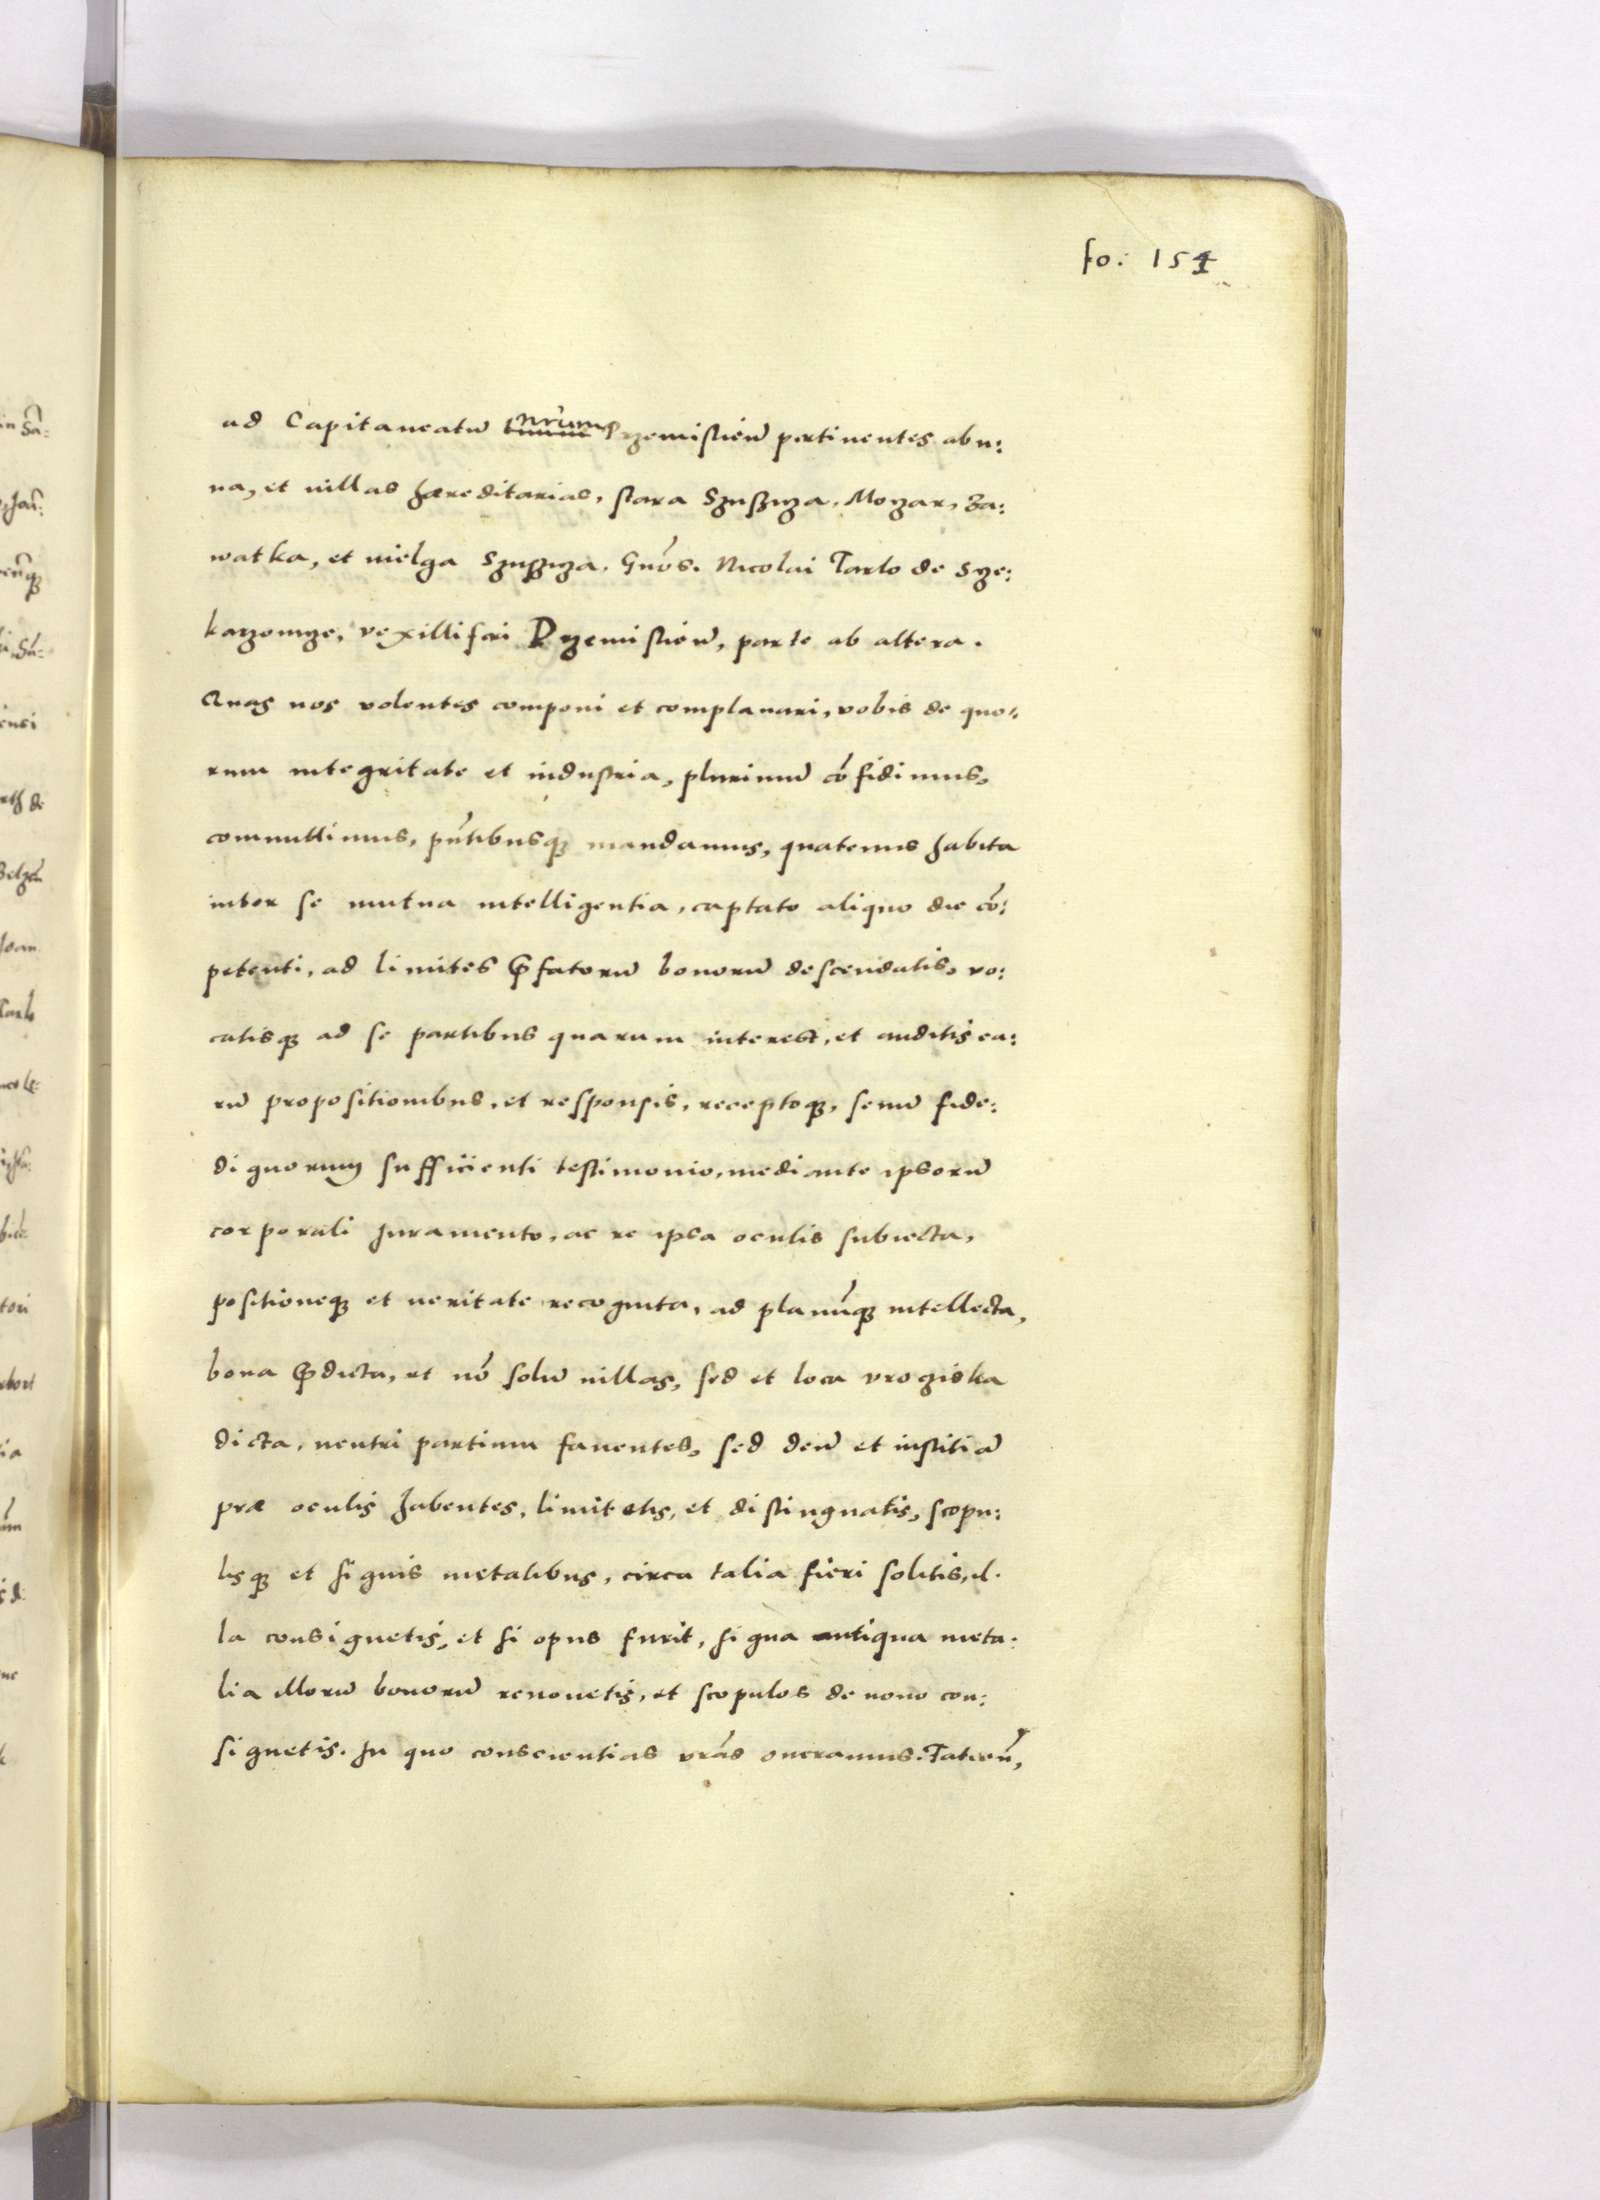 fo: 154
ad Capitaneatū nr̄um Pzemislien̄ pertinentes ab u:
na, et uillas hæreditarias, stara Szuszyza, Mozar, Za:
watka, et uielga Szuszyza, Gn̄os. Nicolai Tarlo de Sze:
karzowyze, vexilliferi Pzemislien̄, parte ab altera.
Quas nos volentes componi et complanari, vobis de quo:
rum integritate et industria, plurimū cōfidimus,
committimus, pn̄tibusq; mandamus, quatenus habita
inter se mutua intelligentia, captato aliquo die cō:
petenti, ad limites p̄fatorū bonorū descendatis, vo:
catisq; ad se partibus quarum interest, et auditis ea:
rū propositionibus, et responsis, receptoq, senū fide:
dignorum sufficienti testimonio, mediante ipsorū
corporali Juramento, ac re ipsa oculis subiecta,
positioneq; et ueritate recognita, ad planūq; intellecta,
bona p̄dicta, et nō solū uillas, sed et loca vrogiska
dicta, neutri partium fauentes, sed deū et iustitiā
præ oculis habentes, limitetis, et distinguatis, scopu:
lisq; et signis metalibus, circa talia fieri solitis, il.
la consignetis, et si opus fuerit, signa antiqua meta:
lia illorū bonorū renouetis, et scopulos de nouo con:
signetis. In quo conscientias vrās oneramus.